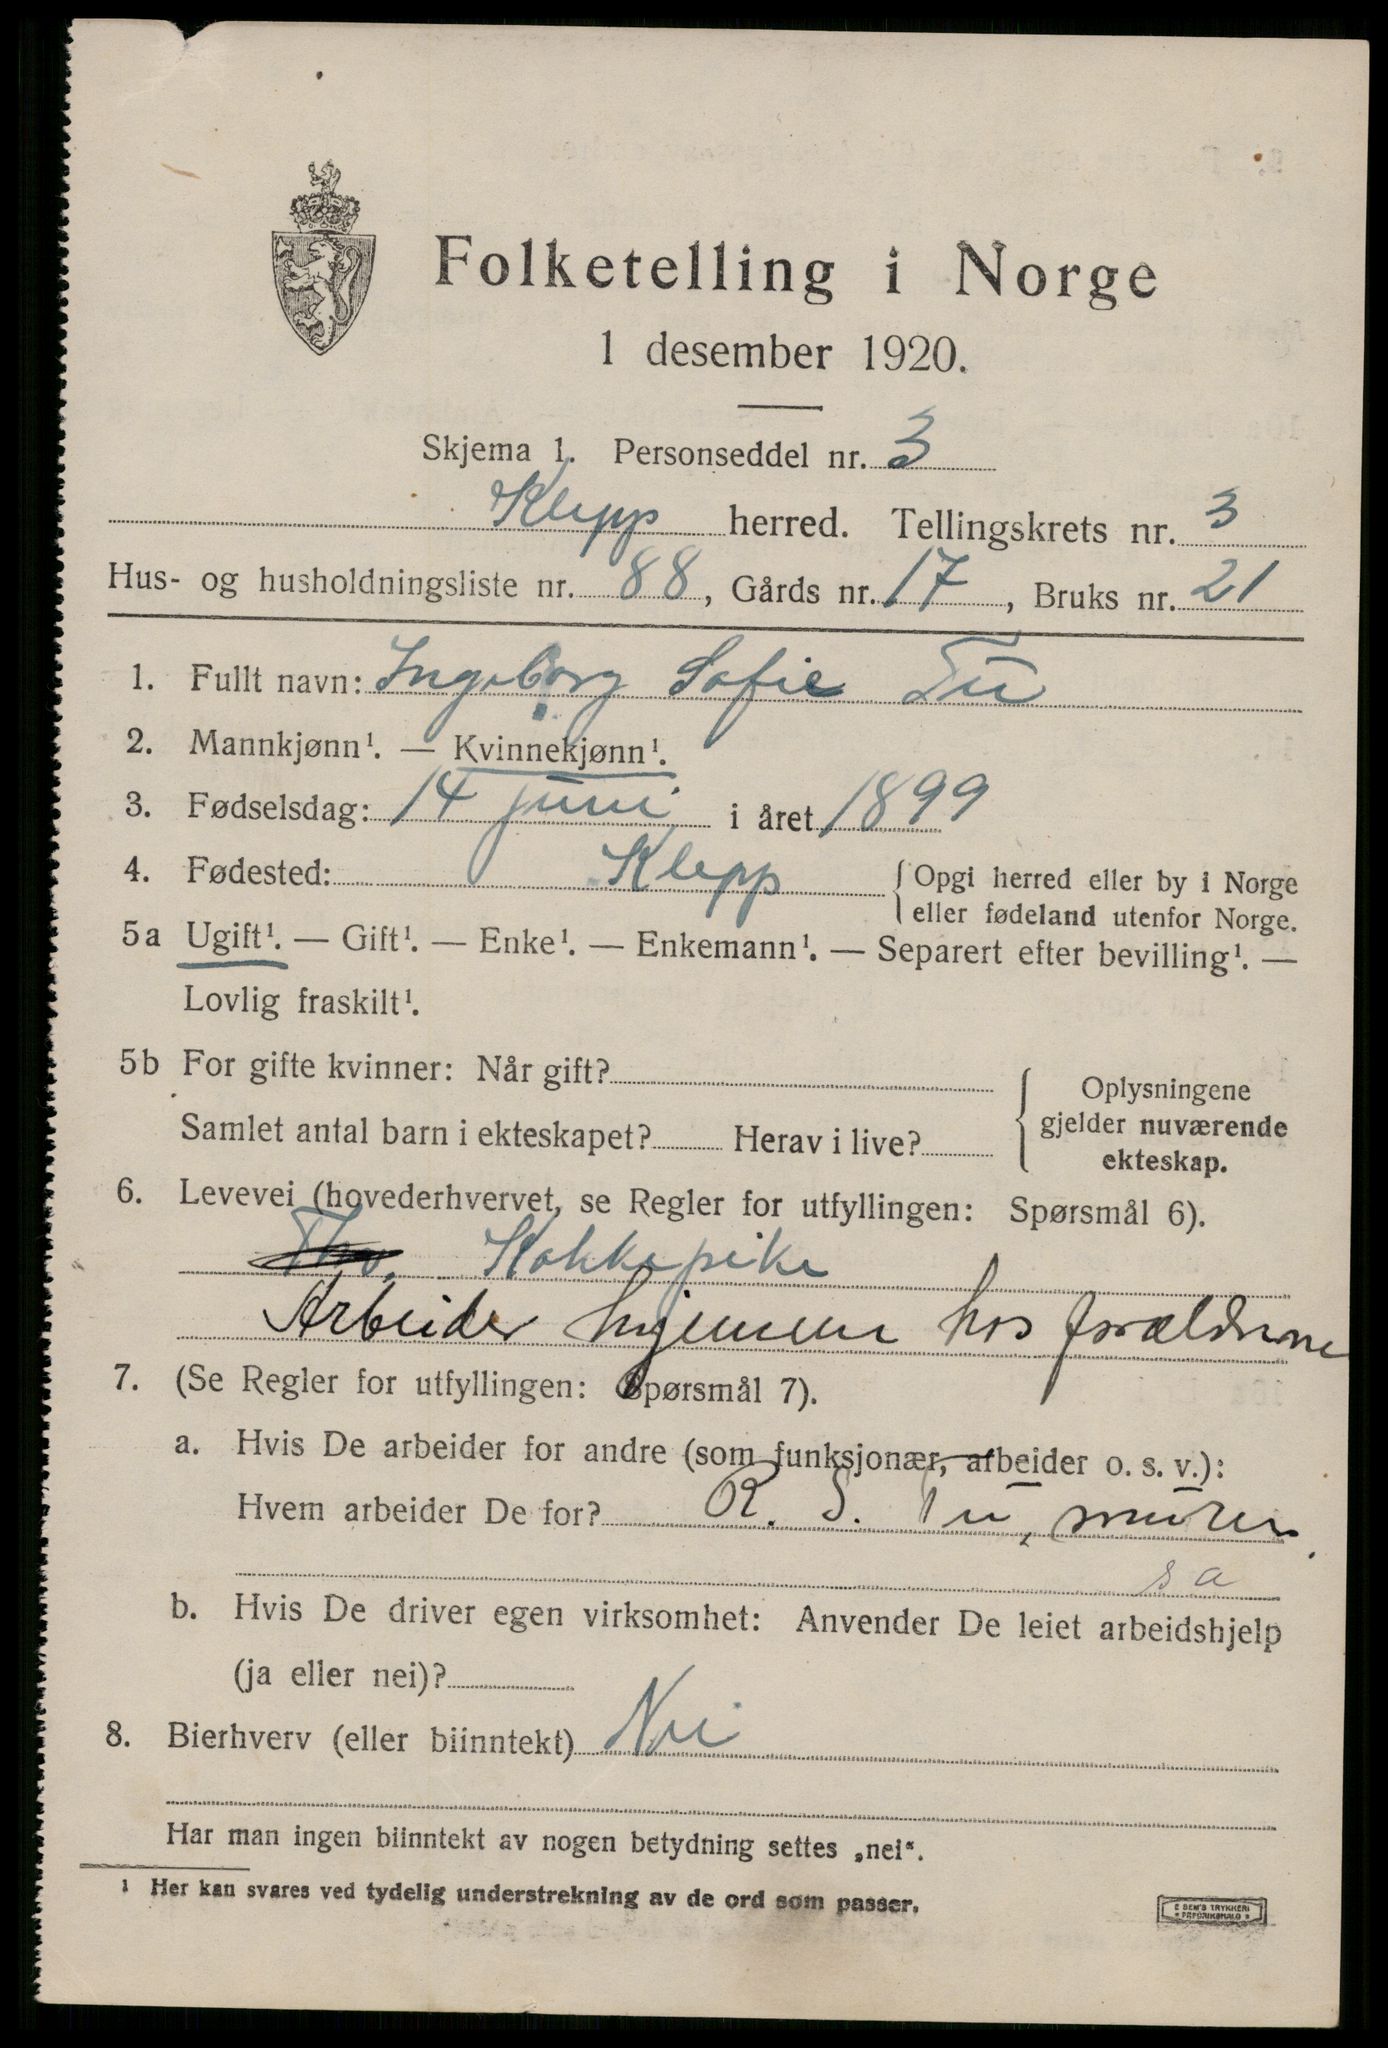 Folketelling i Norge
1 desember 1920.
Skjema 1. Personseddel nr. 3
Klepp herred. Tellingskrets nr. 3
Hus- og husholdningsliste nr. 88, Gårds nr. 17, Bruks nr. 21
1. Fullt navn: Ingeborg Sofie Tu
2. Mannkjønn¹. — Kvinnekjønn¹.
3. Fødselsdag: 14 juni i året 1899
4. Fødested: Klepp {Opgi herred eller by i Norge
eller fødeland utenfor Norge.
5a Ugift¹. — Gift¹. — Enke¹. — Enkemann¹. — Separert efter bevilling¹. —
Lovlig fraskilt¹.
5b For gifte kvinner: Når gift?
Samlet antal barn i ekteskapet? Herav i live?
Oplysningene
gjelder nuværende
ekteskap.
6. Levevei (hovederhvervet, se Regler for utfyllingen: Spørsmål 6).
Kokkepike
Arbeider hjemme hos forældrene
7. (Se Regler for utfyllingen: Spørsmål 7).
a. Hvis De arbeider for andre (som funksjonær, arbeider o. s. v.):
Hvem arbeider De for? R. S. Tu, murer
s a
b. Hvis De driver egen virksomhet: Anvender De leiet arbeidshjelp
(ja eller nei)?
8. Bierhverv (eller biinntekt) Nei
Har man ingen biinntekt av nogen betydning settes „nei“.
¹ Her kan svares ved tydelig understrekning av de ord som passer.
E SEM'S TRYKKERI
FREDRIKSHALD